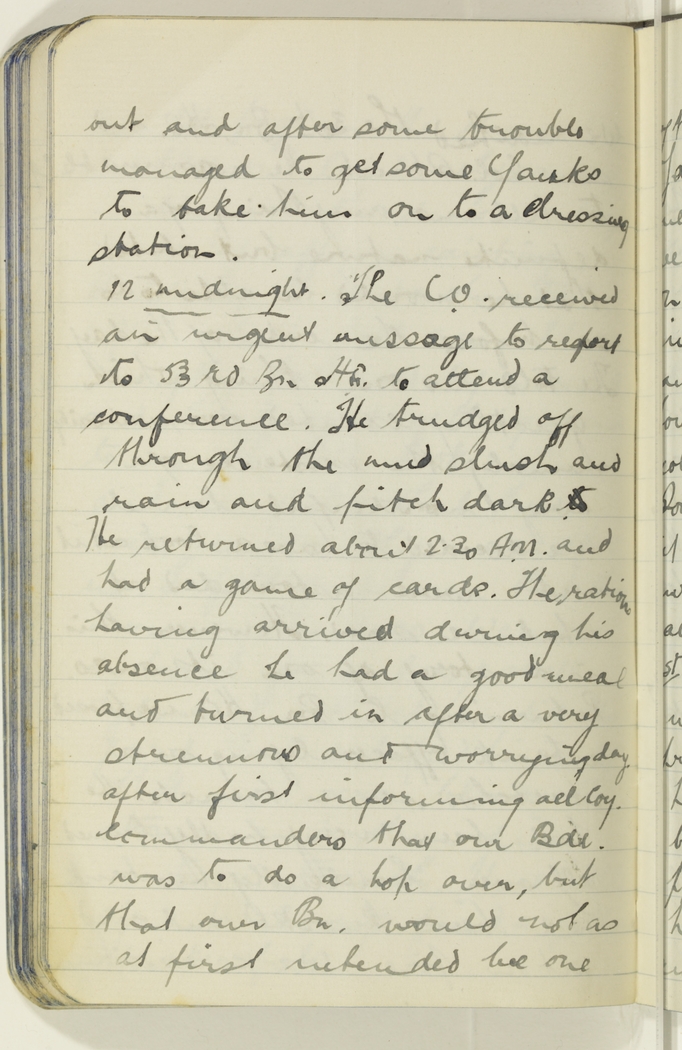 out and after some trouble
managed to get some Yanks
to take him on to a dressing
station.
12 midnight. The CO. received
an urgent message to report
to 53 RD Bn. HQ. to attend a
conference. He trudged off
through the mud slush and
rain and pitch dark
He returned about 2.30 A.M. and
had a game of cards. The rations
having arrived during his
absence he had a good meal
and turned in after a very
strenuous and worrying day
after first informing all Coy.
Commanders that our Bde.
was to do a hop over, but
that our Bn. would not as
at first intended be one